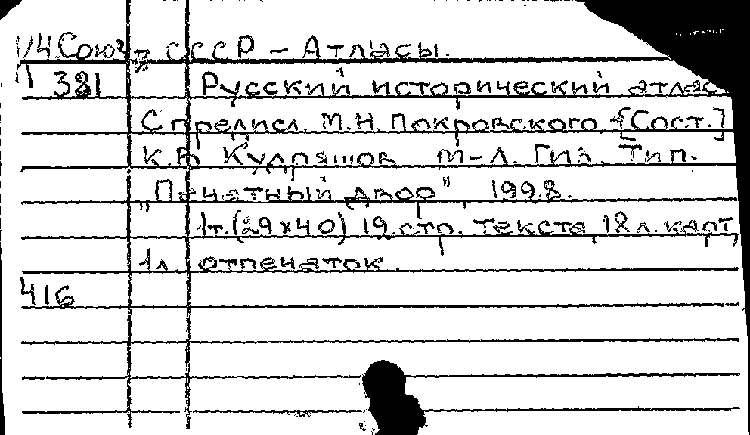 1/4 Союз СССР – Атласы.
381 Русский исторический атлас
С предисл. М.Н. Покровского [Сост.]
К.В. Кудряшов М-Л. Гиз. Тип.
„Печатный двор", 1998.
1т. (29х40) 19 стр. текста, 18 л. карт,
1 л. отпечаток.
416